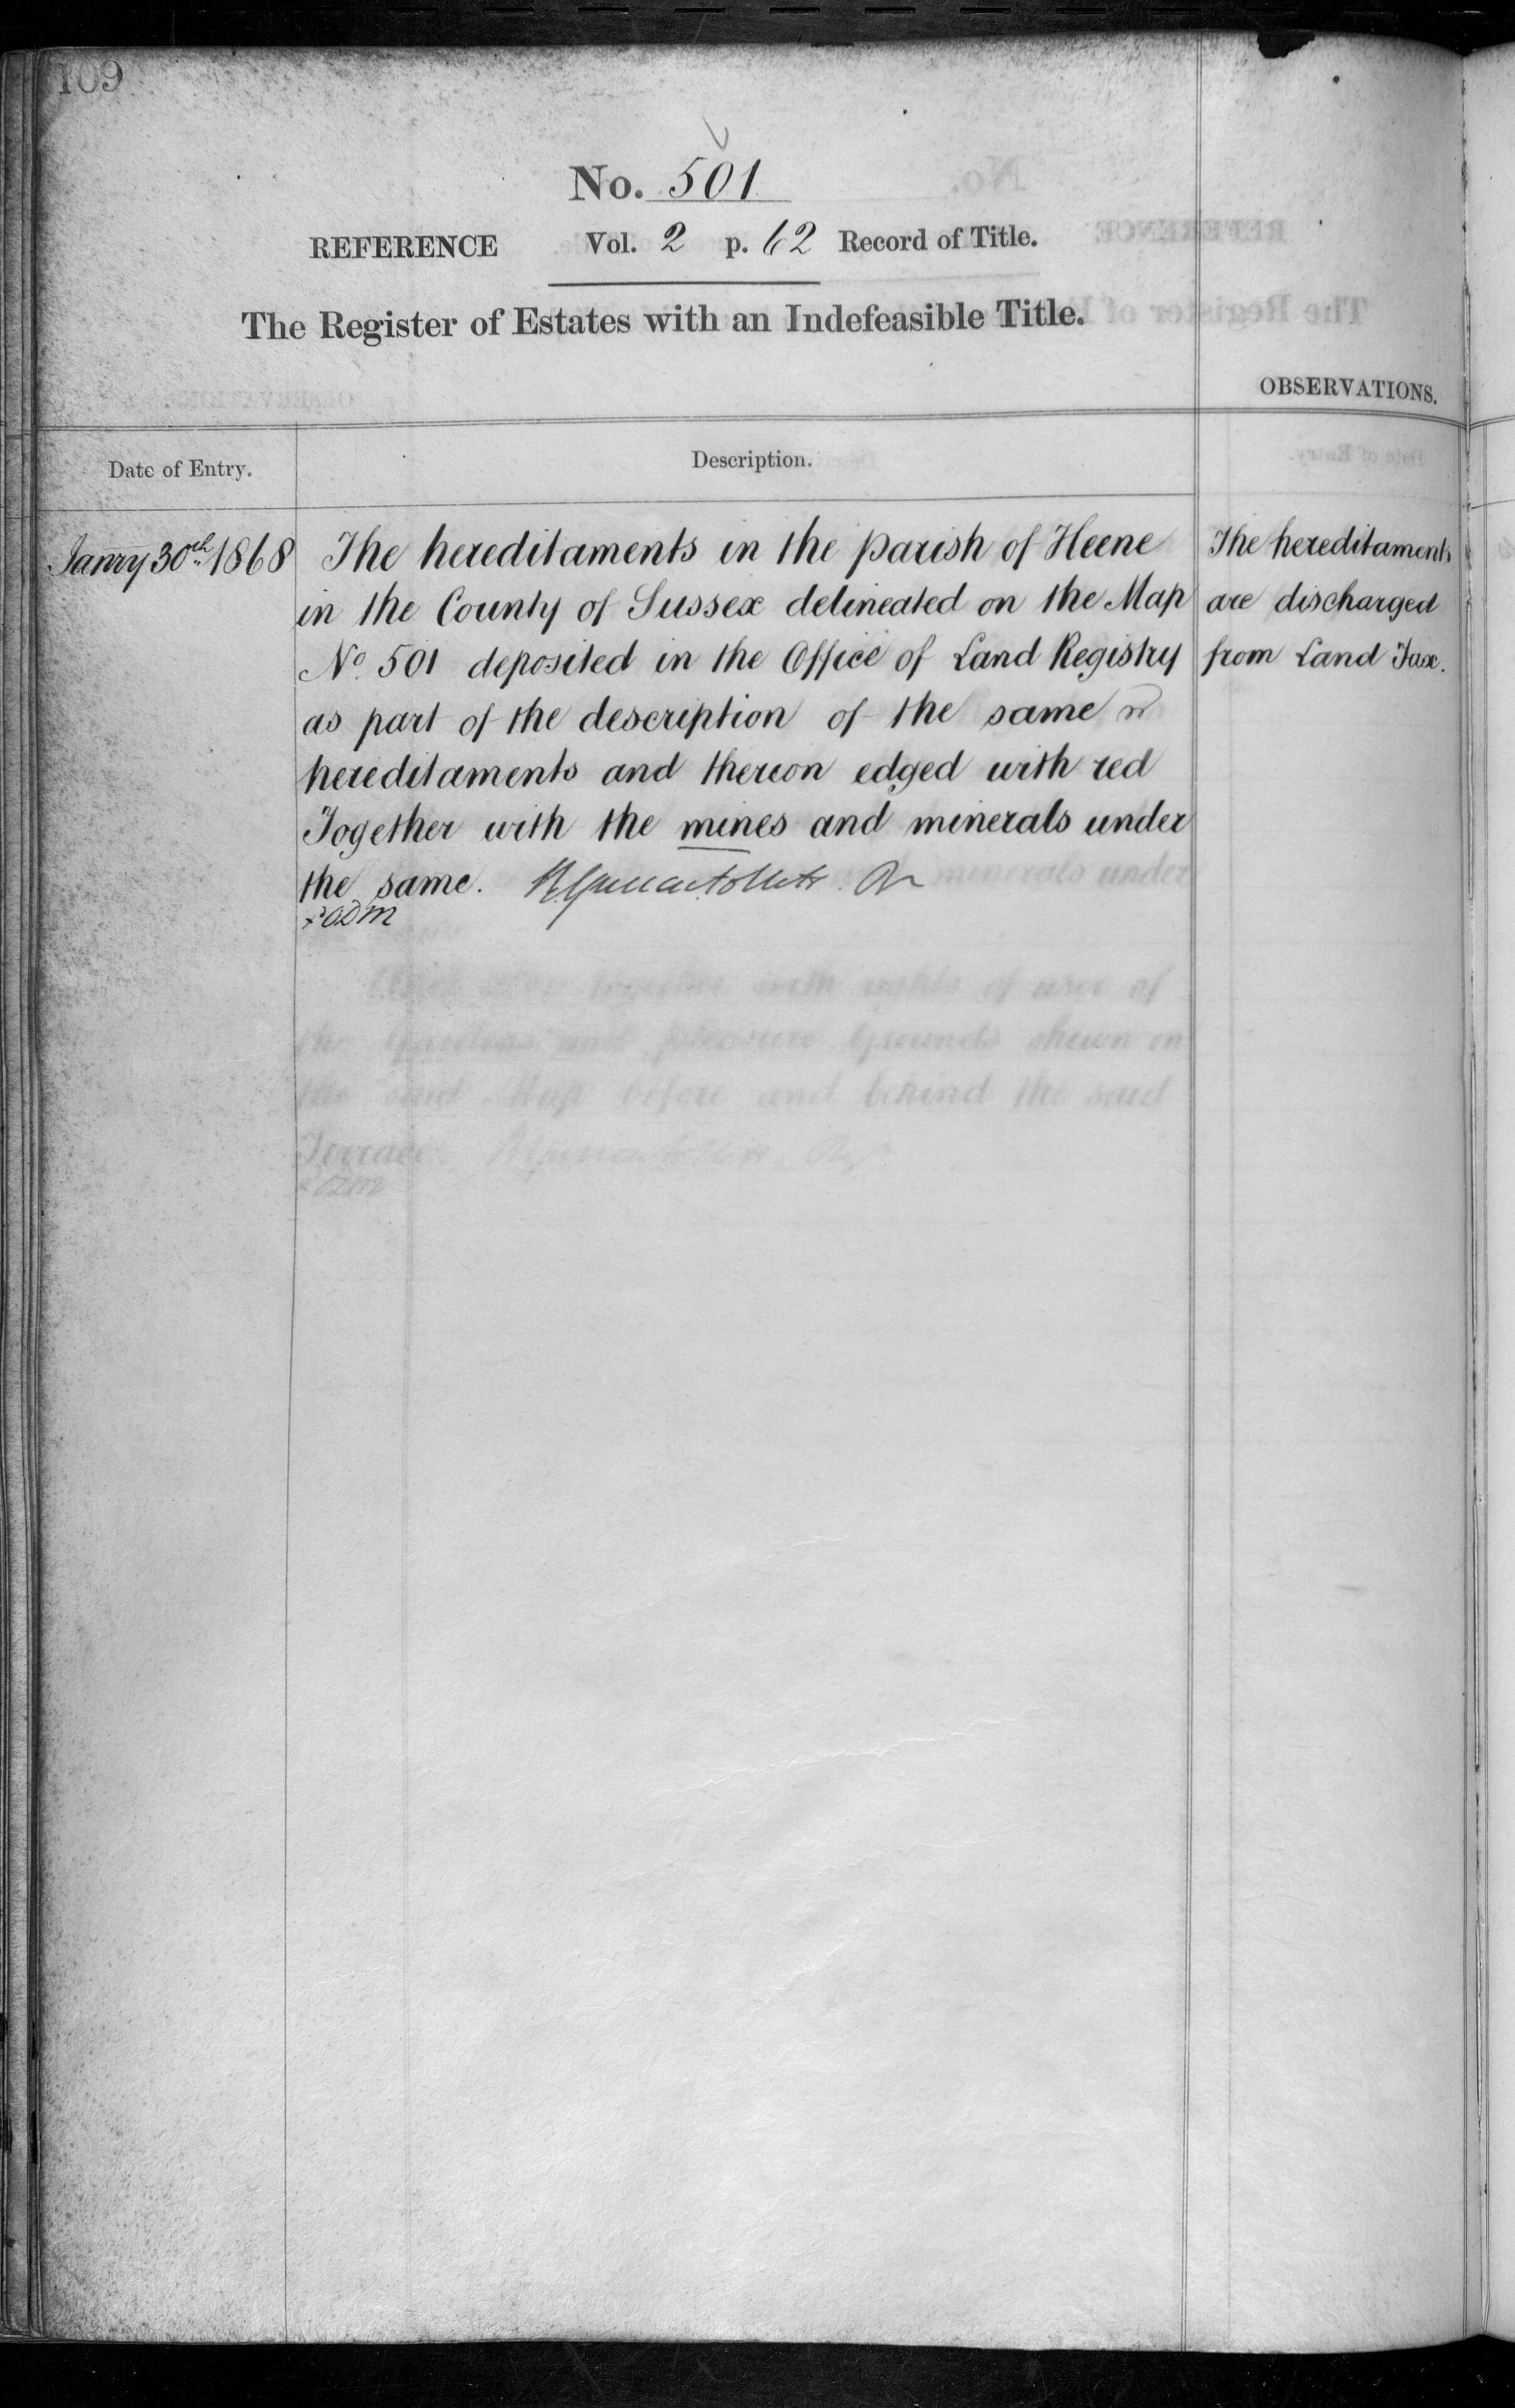 109
No. 501
REFERENCE Vol. 2 p. 62 Record of Title.
The Register of Estates with an Indefeasible Title.
OBSERVATIONS.
Date of Entry.
Description.
Janry 30th 1868
The hereditaments in the parish of Heene
in the County of Sussex delineated on the Map
No. 501 deposited in the Office of Land Registry
as part of the description of the same
hereditaments and thereon edged with red
Together with the mines and minerals under
the same.
The hereditaments
are discharged
from Land Tax.